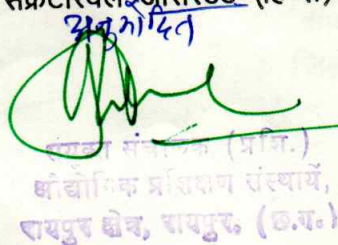 अनुमोदित
संयुक्त संचालक (प्रशि.)
औद्योगिक प्रशिक्षण संस्थायें,
रायपुर क्षेत्र, रायपुर, (छ.ग.)